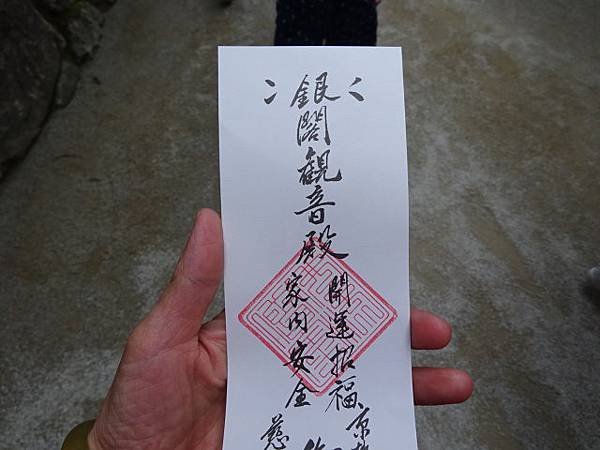 銀閣観音殿
開運招福
家内安全
京
慈